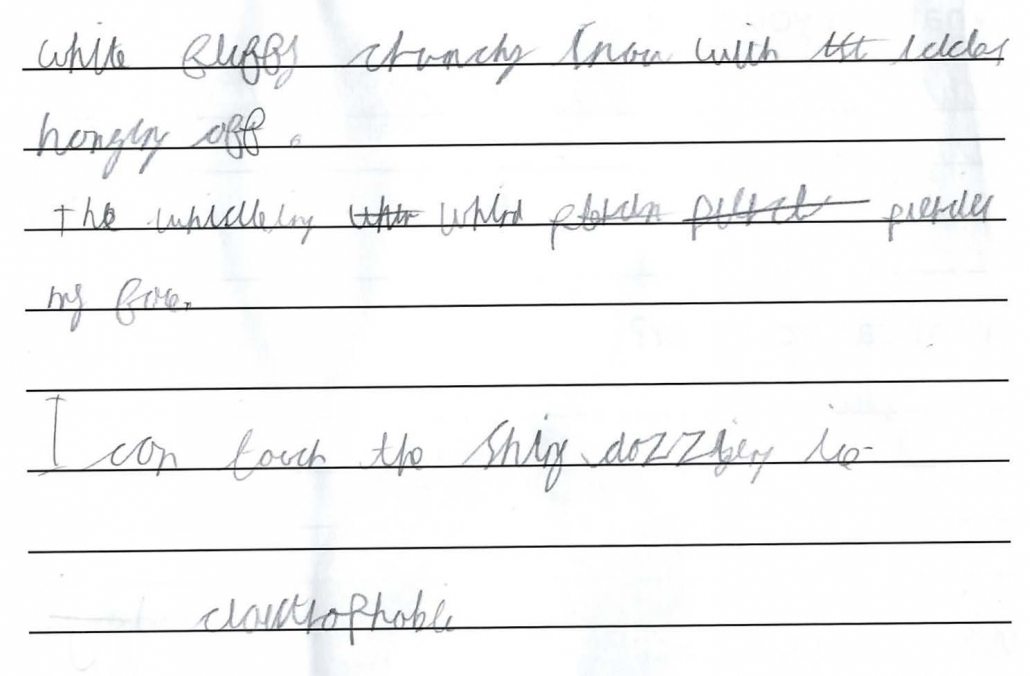 white fluffy crunchy snow with icicles
hanging off.
The whistling wind pierces
my face.
I can touch the shiny dazzling ice
claustrophobic